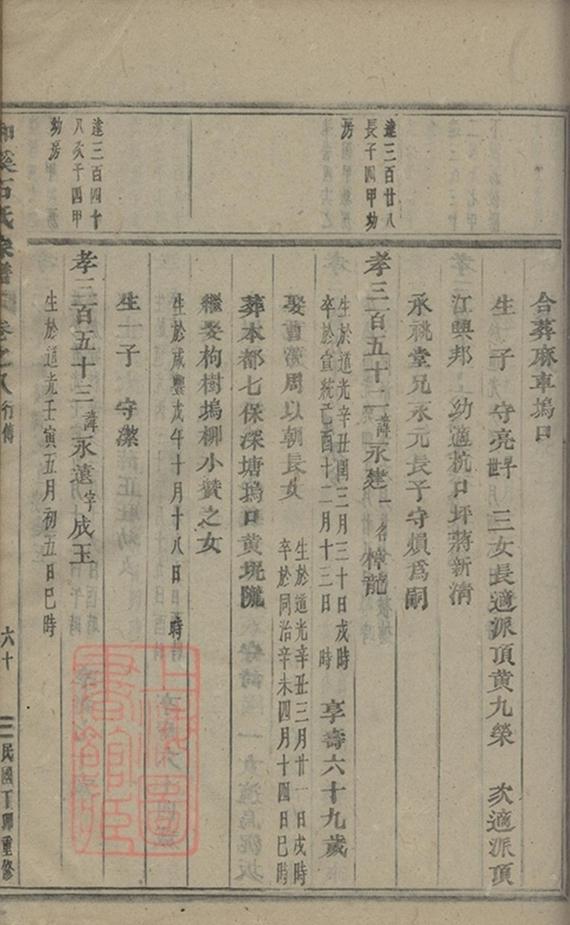 合葬麻車塢口
生一子 守亮早世 三女長適派頂黃九榮 次適派頂
江興邦 幼適杭口坪蔣新清
承祧堂兄永元長子守煩為嗣
達三百廿八
長子四甲幼
房
孝三百五十二諱永建一名樟龍
生於道光辛丑閏三月三十日戌時
卒於宣統己酉十二月十三日 時
享壽六十九歲
娶曹溪周以朝長女
生於道光辛丑三月廿一日戌時
卒於同治辛未四月十四日巳時
葬本都七保深塘塢口黃坑隴
繼娶枸樹塢柳小贊之女
生於咸豐戊午十月十八日日時
生一子 守潔
達三百四十
八次子四甲
幼房
孝三百五十三諱永遠字成玉
生於道光壬寅五月初五日巳時
石氏宗譜
卷之八 行傳
六十
民國丁卯重修